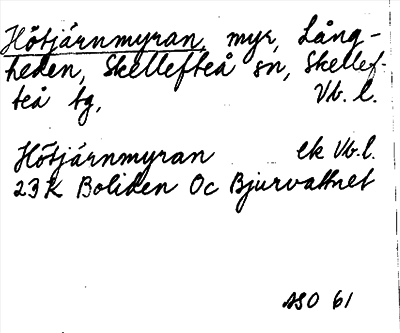 Hötjärnmyran, myr, Lång-
heden, Skellefteå sn, Skellef-
teå tg, Vb. l.
Hötjärnmyran ek Vb. l.
23 K Boliden Oc Bjurvattnet
ASO 61